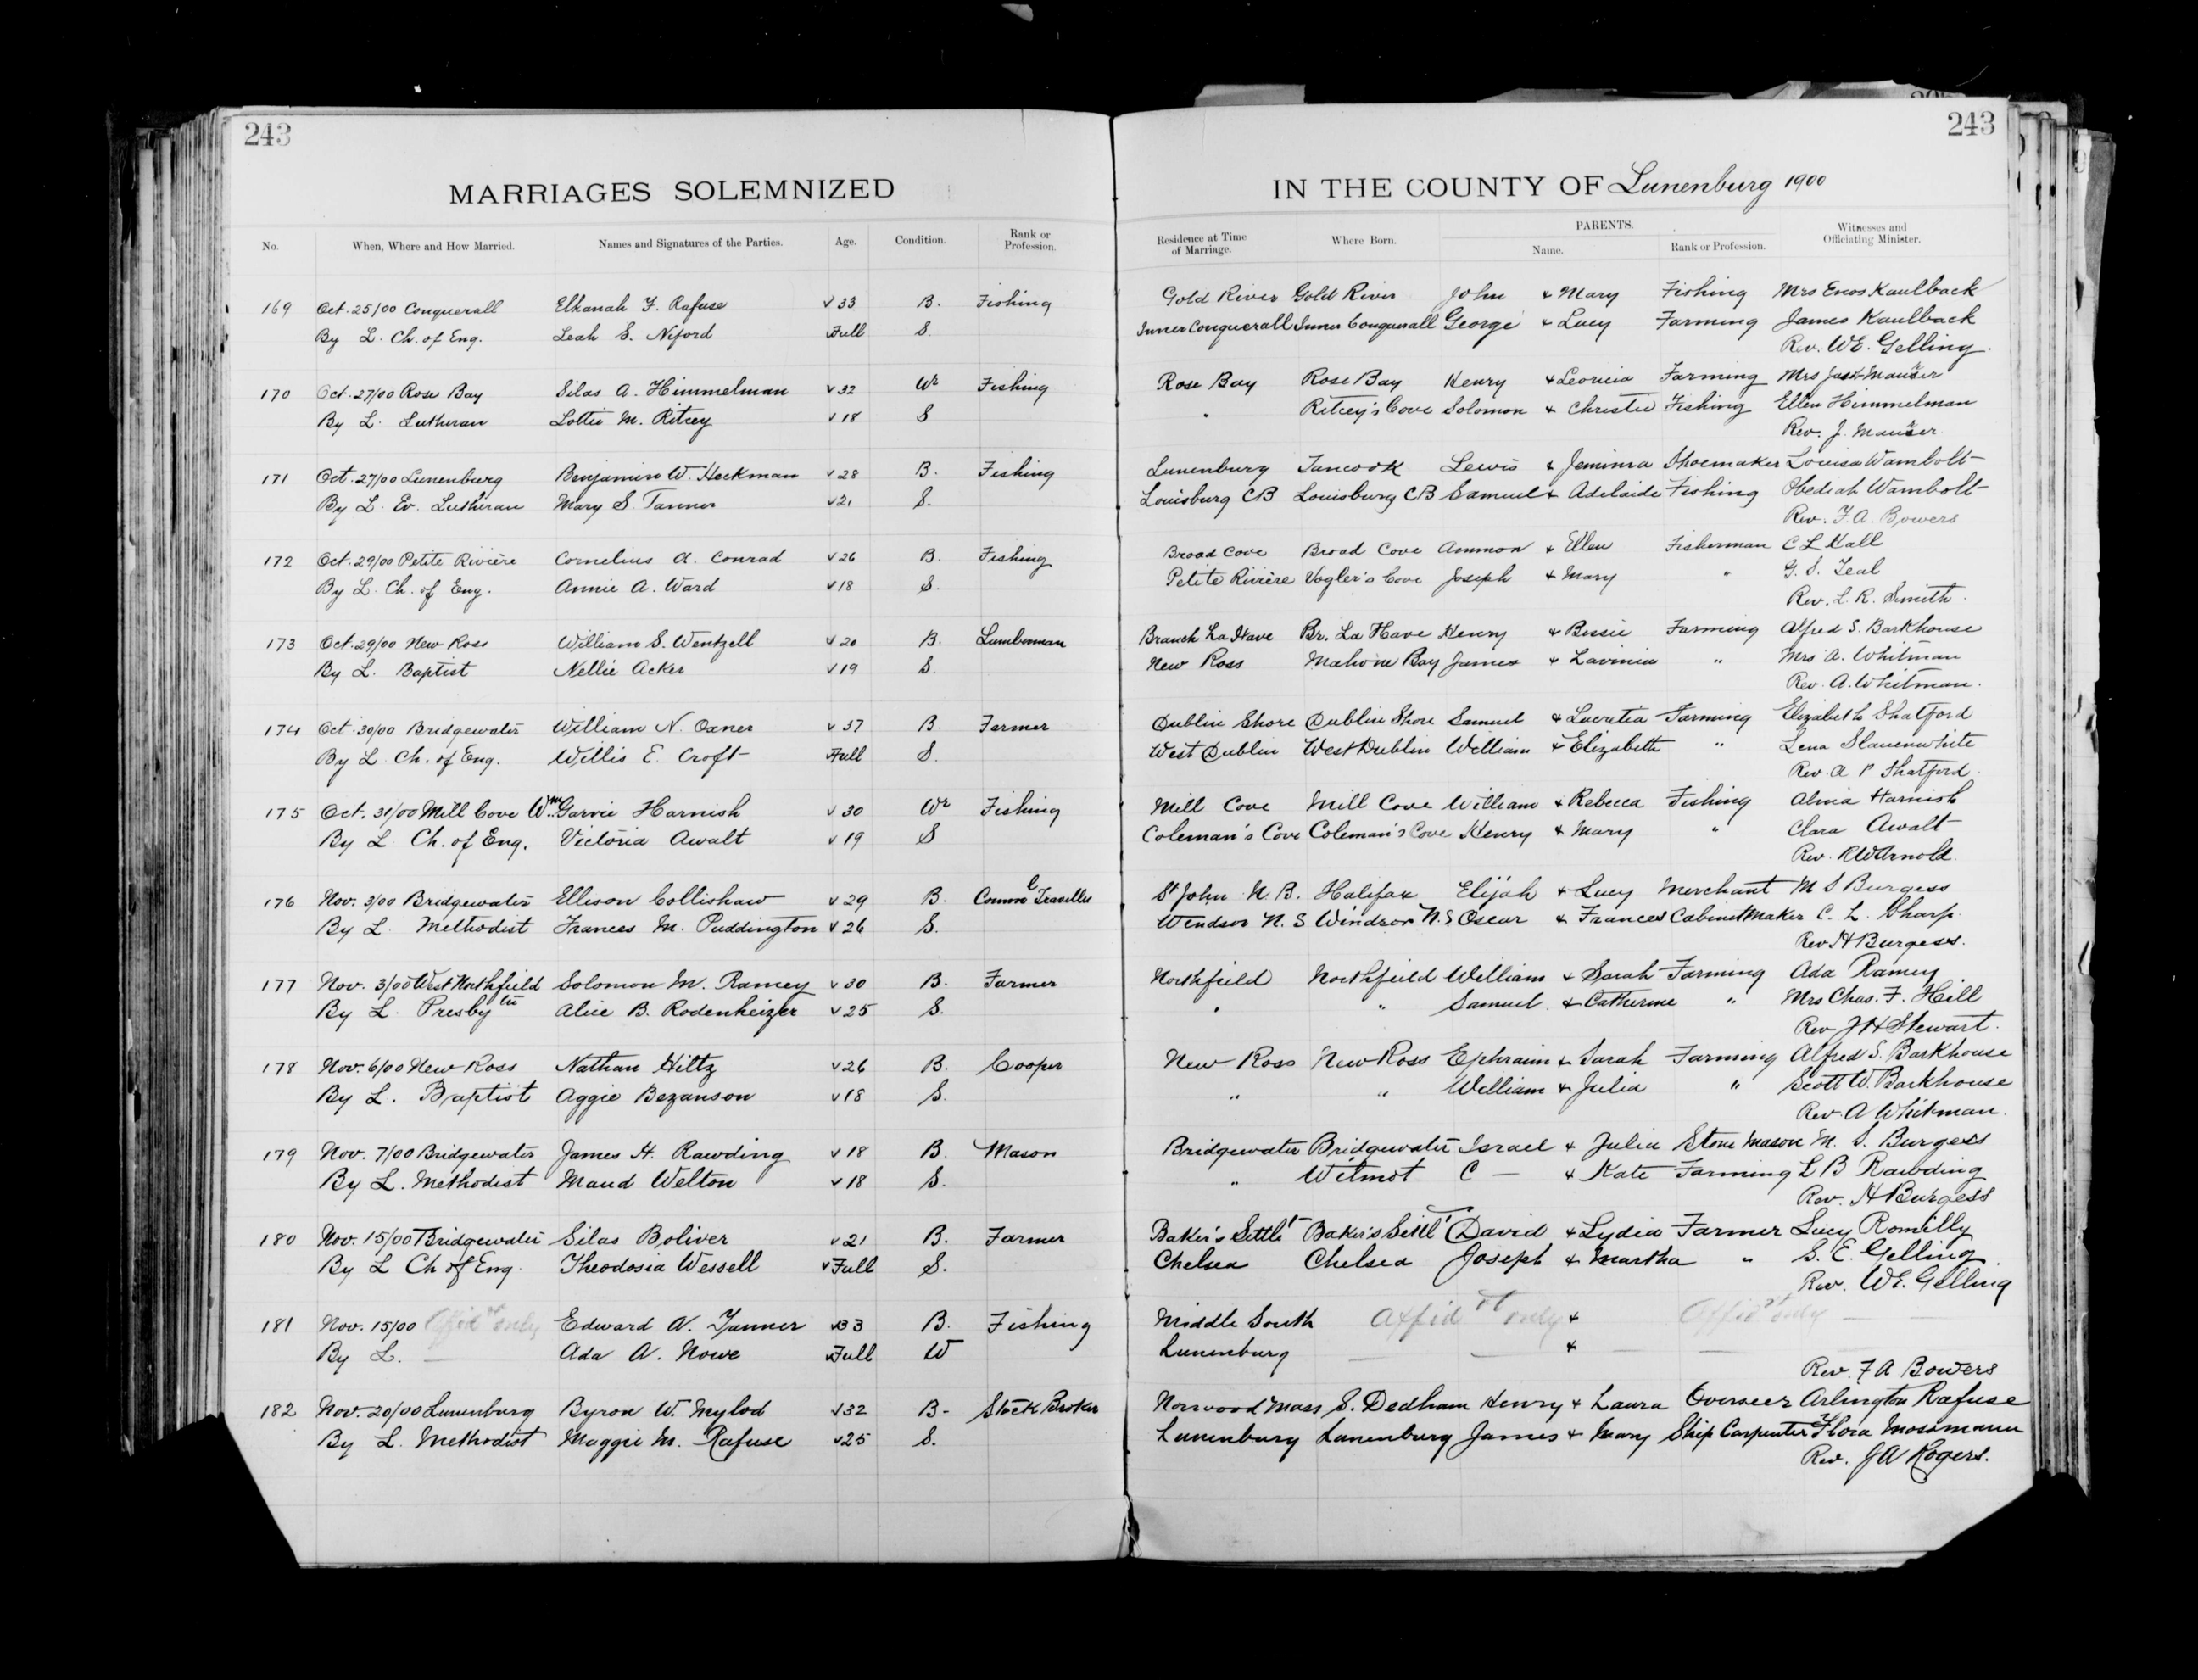 243
243
MARRIAGES SOLEMNIZED IN THE COUNTY OF Lunenburg 1900
No. When, Where and How Married. Names and Signatures of the Parties. Age. Condition. Rank or Profession. Residence at Time of Marriage. Where Born. PARENTS. Name. Rank or Profession. Witnesses and Officiating Minister.
169 Oct. 25/00 Conquerall Elkanah F. Rafuse v 33 B. Fishing Gold River Gold River John & Mary Fishing Mrs Enos Kaulback
By L. Ch. of Eng. Leah S. Niford Full S. Inner Conquerall Inner Conquerall George & Lucy Farming James Kaulback
Rev. W.E. Gelling.
170 Oct. 27/00 Rose Bay Silas A. Himmelman v 32 Wr Fishing Rose Bay Rose Bay Henry & Leonicia Farming Mrs
By L. Lutheran Lottie M. Ritcey v 18 S " Ritcey's Cove Solomon & Christie Fishing Ellen Himmelman
Rev. J.
171 Oct. 27/00 Lunenburg Benjamin W. Heckman v 28 B. Fishing Lunenburg Tancook Lewis & Jemima Shoemaker Louisa Wambolt
By L. Ev. Lutheran Mary S. Tanner v 21 S. Louisburg CB Louisburg CB Samuel & Adelaide Fishing Obediah Wambolt
Rev. F.A. Bowers
172 Oct. 29/00 Petite Rivière Cornelius A. Conrad v 26 B. Fishing Broad Cove Broad Cove Ammon & Ellen Fisherman C L Hall
By L. Ch. of Eng. Annie A. Ward v 18 S. Petite Rivière Vogler's Cove Joseph & Mary " G. S. Teal
Rev. L. R. Smith.
173 Oct. 29/00 New Ross William S. Wentzell v 20 B. Lumberman Branch La Have Br. La Have Henry & Bessie Farming Alfred S. Barkhouse
By L. Baptist Nellie Acker v 19 S. New Ross Mahone Bay James & Lavinia " Mrs A. Whitman
Rev. A. Whitman.
174 Oct. 30/00 Bridgewater William N. Oxner v 37 B. Farmer Dublin Shore Dublin Shore Samuel & Lucretia Farming Elizabeth Shatford
By L. Ch. of Eng. Willis E. Croft Full S. West Dublin West Dublin William & Elizabeth " Lena Slauenwhite
Rev. A P Shatford.
175 Oct. 31/00 Mill Cove Wm. Garvie Harnish v 30 Wr Fishing Mill Cove Mill Cove William & Rebecca Fishing Alma Harnish
By L Ch. of Eng. Victoria Awalt v 19 S Coleman's Cove Coleman's Cove Henry & Mary " Clara Awalt
Rev. R W Arnold.
176 Nov. 3/00 Bridgewater Ellison Collishaw v 29 B. Comml Traveller St John N.B. Halifax Elijah & Lucy Merchant M S Burgess
By L Methodist Frances M. Puddington v 26 S. Windsor N. S Windsor N. S Oscar & Frances Cabinet Maker C. L. Sharp.
Rev H Burgess.
177 Nov. 3/00 West Northfield Solomon M. Ramey v 30 B. Farmer Northfield Northfield William & Sarah Farming Ada Ramey
By L. Presbytn Alice B. Rodenheizer v 25 S. " " Samuel & Catherine " Mrs Chas. F. Hill
Rev J H Stewart.
178 Nov. 6/00 New Ross Nathan Hiltz v 26 B. Cooper New Ross New Ross Ephraim & Sarah Farming Alfred S. Barkhouse
By L. Baptist Aggie Bezanson v 18 S. " " William & Julia " Scott W. Barkhouse
Rev. A Whitman.
179 Nov. 7/00 Bridgewater James H. Rawding v 18 B. Mason Bridgewater Bridgewater Israel & Julia Stone Mason M. S. Burgess
By L. Methodist Maud Welton v 18 S. " Wilmot C — & Kate Farming L B Rawding
Rev. H Burgess
180 Nov. 15/00 Bridgewater Silas Boliver v 21 B. Farmer Baker's Settlt Baker's Settlt David & Lydia Farmer Lucy Romilly
By L Ch of Eng. Theodosia Wessell v Full S. Chelsea Chelsea Joseph & Martha " S. E. Gelling
Rev. W.E. Gelling
181 Nov. 15/00 Affidvt only Edward A. Tanner v 33 B. Fishing Middle South Affidvt only & Affidvt only — —
By L. — Ada A. Nowe v Full W Lunenburg — — & — —
Rev. F A Bowers
182 Nov. 20/00 Lunenburg Byron W. Mylod v 32 B- Stock Broker Norwood Mass S. Dedham Henry & Laura Overseer Arlington Rafuse
By L. Methodist Maggie M. Rafuse v 25 S. Lunenburg Lunenburg James & Mary Ship Carpenter Flora Mossmann
Rev. J A Rogers.